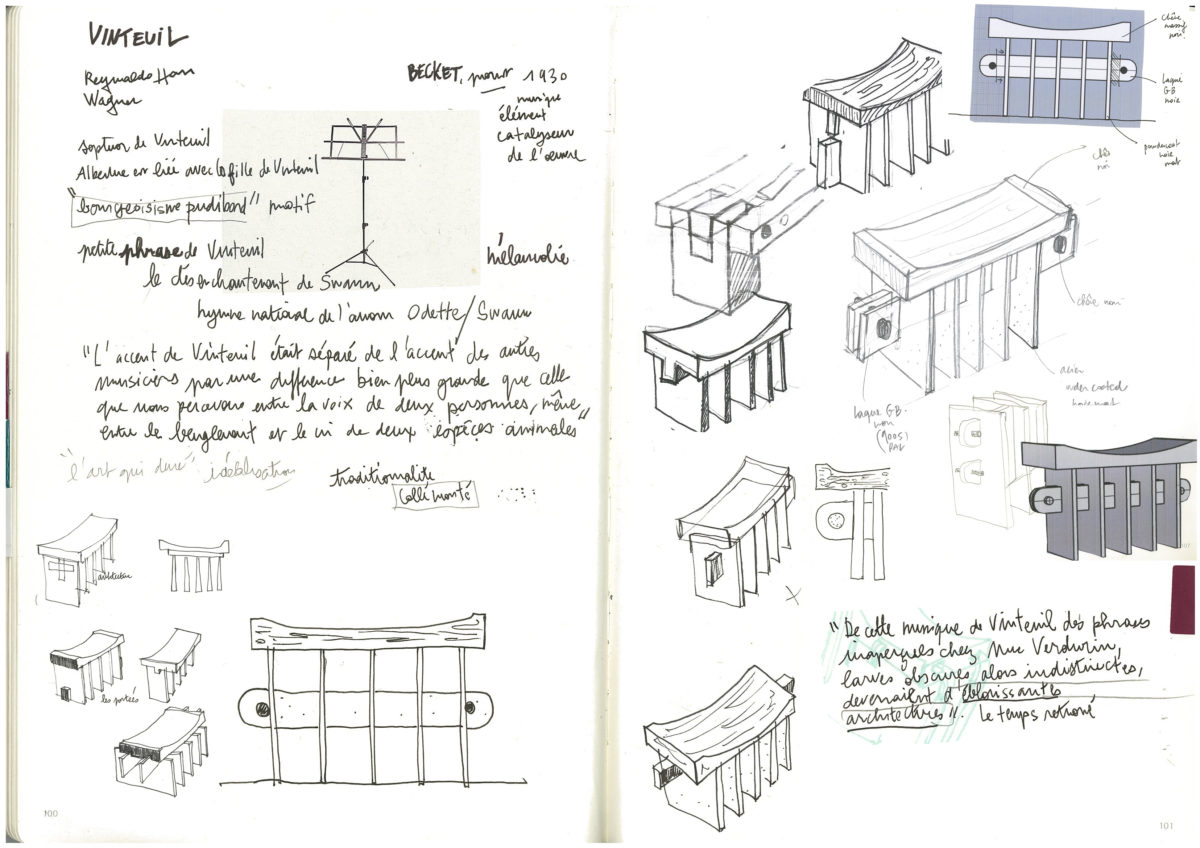 VINTEUIL
Reynaldo Hahn
Wagner
BECKET, proust 1930
musique
élément
catalyseur
de l'œuvre
septuor de Vinteuil
Albertine est liée avec la fille de Vinteuil
"bourgeoisisme pudibond" motif
petite phrase de Vinteuil
mélancolie
le désenchantement de Swann
hymne national de l'amour Odette/Swann
"L'accent de Vinteuil était séparé de l'accent des autres
musiciens par une différence bien plus grande que celle
que nous percevons entre la voix de deux personnes, même
entre le beuglement et le cri de deux espèces animales"
"l'art qui dure" idéalisation
traditionnalité
collé monté
architecture
les portées
100
chêne
massif
noir
laque
GB
noire
noir
mat
chêne noir
acier
noir mat
laque GB
noir
(9005)
RAL
"De cette musique de Vinteuil des phrases
inaperçues chez Mme Verdurin,
larves obscures alors indistinctes,
devenaient d'éblouissantes
architectures". Le temps retrouvé
101